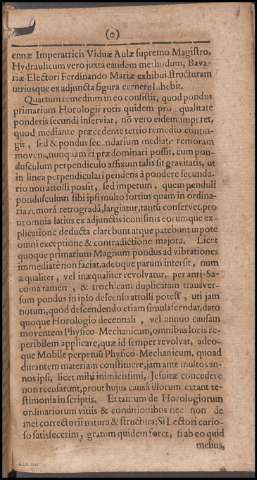 (o)
ennæ Imperatricis Viduæ Aulæ supremo Magistro,
Hydraulicum vero juxta eandem methodum, Bava-
riæ Electori Ferdinando Mariæ exhibui structuram
utriusque ex adjuncta figura cernere lubebit.
Quartum remedium in eo consistit, quod pondus
primarium Horologii rotis quidem pro qualitate
ponderis secundi inserviat, nõ vero eidem imperet,
quod mediante præcedente tertio remedio contin-
git, sed & pondus secundarium mediatè remotum
movens, nunquam ei prædominari possit, cum pon-
dusculum perpendiculo affixum talis sit gravitatis, ut
in linea perpendiculari pendens à pondere secunda-
rio non attolli possit, sed impetum, quem penduli
pondusculum sibi ipsi multo fortius quam in ordina-
ria
omnia latius ex adjunctis iconismis eorumque ex-
plicatione deducta clarebunt atque patebunt ut pote
omni exceptione & contradictione majora. Licet
quoque primarium Magnum pondus ad vibrationes
immediatè non faciat, adeoque parum intersit, num
æqualiter, vel inæqualiter revolvatur, per anti-Sa-
coma tamen, & trochleam duplicatam transver-
sum pondus in ipso descensu attolli potest, uti jam
notum, quod descendendo etiam simul ascendat, dato
quoque Horologio decennali, vel annuo causam
moventem Physico-Mechanicum, omnibus locis re-
peribilem applicare, quæ id semper revolvat, adeo-
que Mobile perpetuũ Physico-Mechanicum, quoad
durantem materiam constituere, jam ante multos an-
nos ipsi, licet mihi inimicissimi, Jesuitæ concedere
non recusarunt, prout hujus causa illorum extant te-
stimonia in scriptis. Et tantum de Horologiorum
ordinariorum vitiis & conditionibus nec non de
met correctorii natura & structura; Si Lectori curio-
so satisfecerim, gratum quidem foret, si ab eo quid
melius,